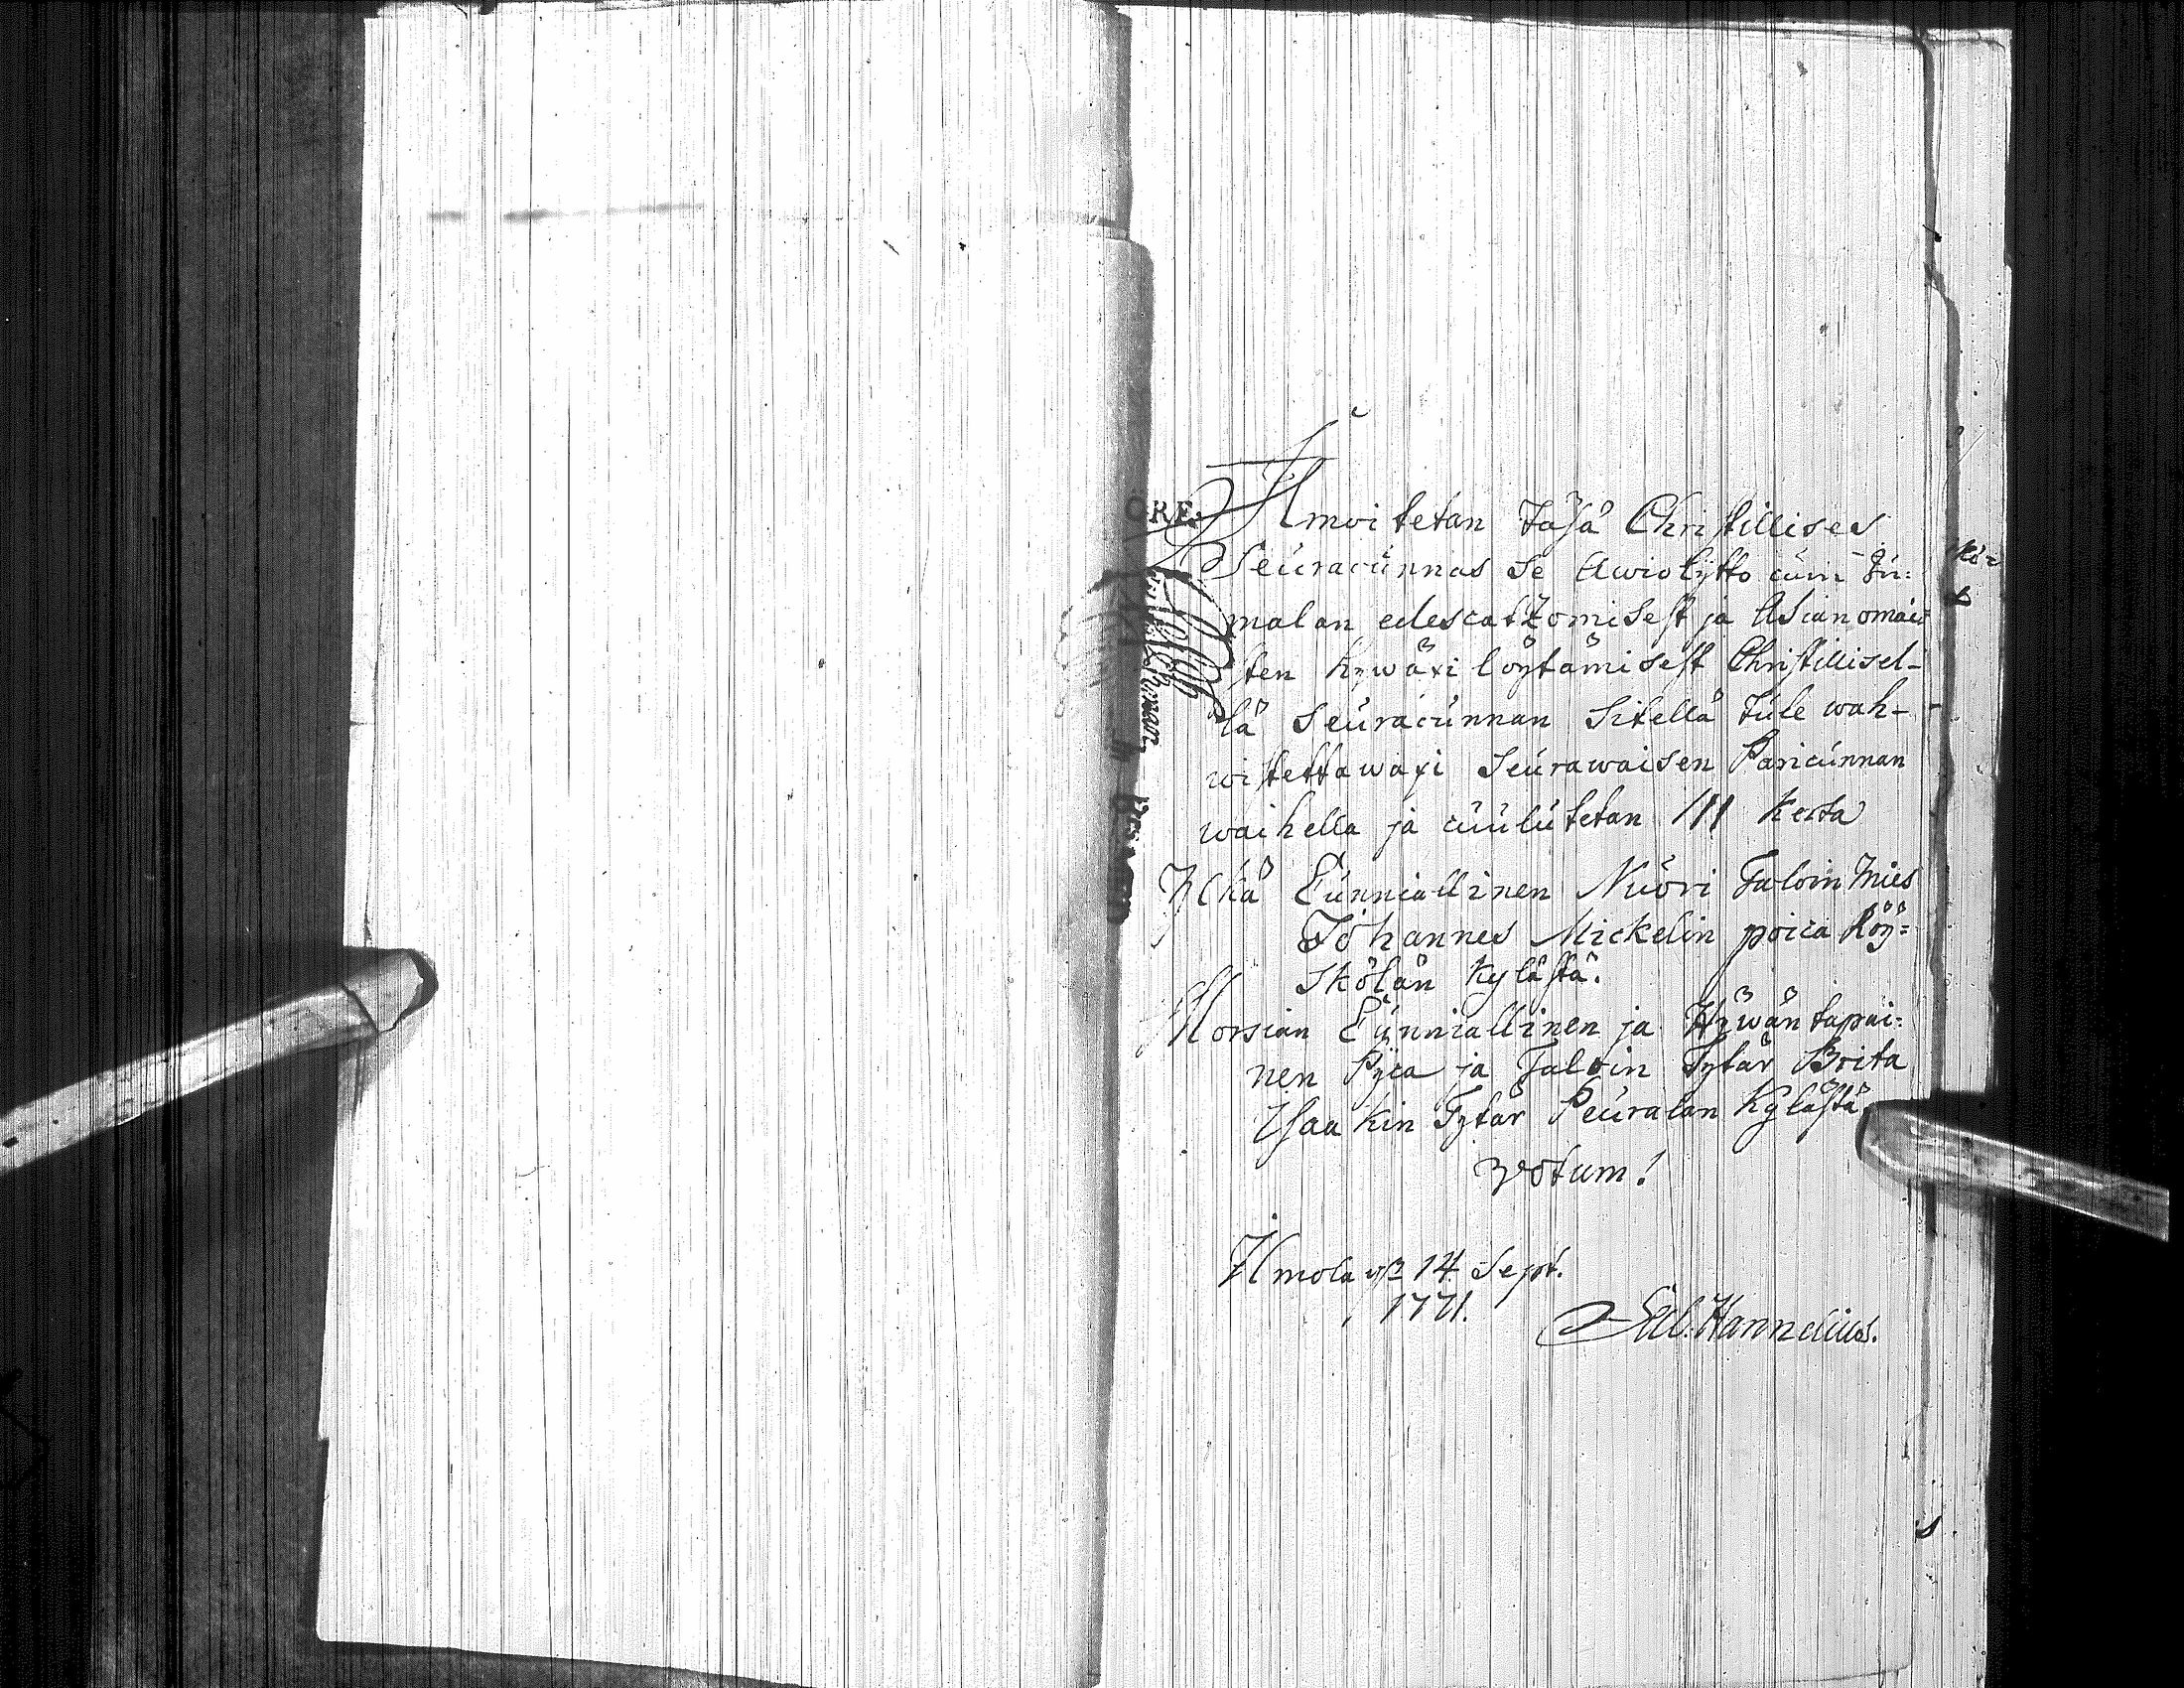 Ilmoitetan täsä Christillises
Seuracunnas se Awiolijtto cuin Ju=
malan edescatzomisest ja Asianomais
ten hywäxi löytämisest Christillisel-
lä Seuracunnan Sitellä tule wah-
wistettawaxi Seurawaisen Paricunnan
waihella ja cuulutetan III Kerta
Ylkä Cunniallinen Nuori Taloin Mies
Johannes Mickelin poica Röy=
skölän Kylästä.
Morsian Cunniallinen ja Hywäntapai=
nen Pijca ja Taloin Tytär Brita
Isaakin Tytär Peuralan Kylästä.
Votum!
Ilmola 14 Sept.
1771.
ORE.